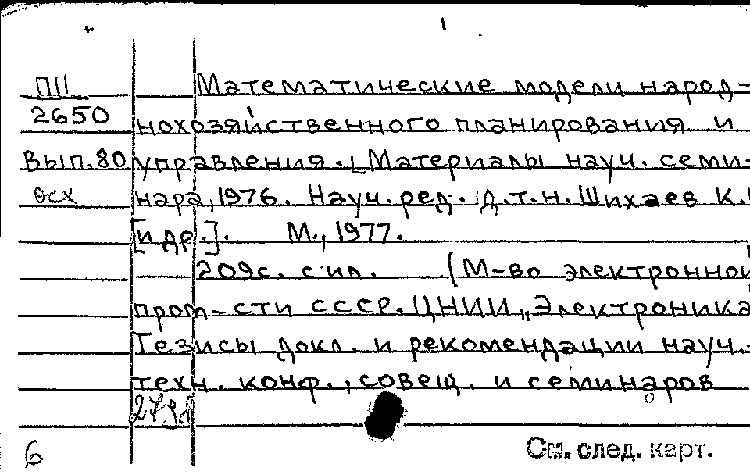 П11 Математические модели народ-
2650 нохозяйственного планирования и
вып.80 управления. [Материалы науч. семи-
осх нара, 1976. Науч. ред. д.т.н. Шихаев К.
[и др.]. М., 1977.
209с. с ил. (М-во электронной
пром-сти СССР. ЦНИИ „Электроника
Тезисы докл. и рекомендации науч.-
техн. конф., совещ. и семинаров
6 См. след. карт.